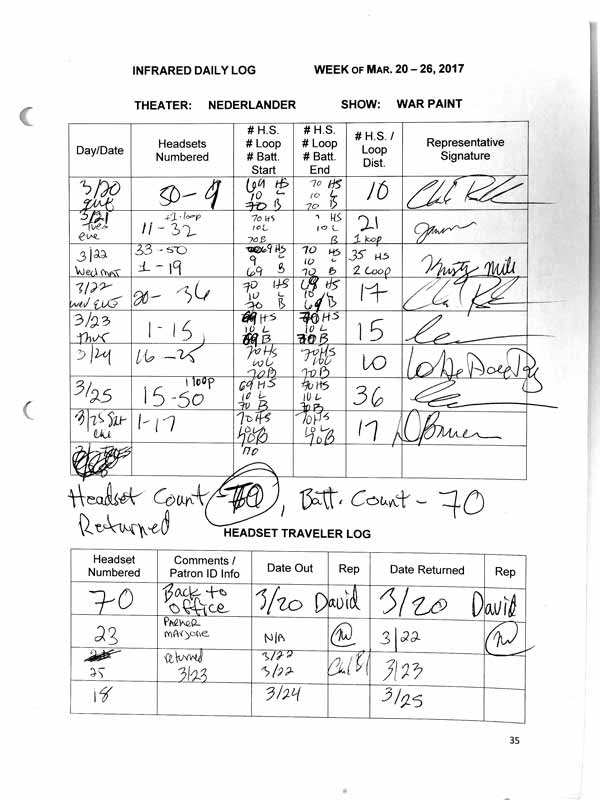 INFRARED DAILY LOG WEEK OF MAR. 20 – 26, 2017
THEATER: NEDERLANDER SHOW: WAR PAINT
Day/Date Headsets Numbered # H.S. # Loop # Batt. Start # H.S. # Loop # Batt. End # H.S. / Loop Dist. Representative Signature
3/20 eve 50-9 69 HS 10 L 70 B 70 HS 10 L 70 B 10
3/21 Tues eve +1 loop 11-32 70 HS 10 L 70 B HS 10 L B 21 1 loop
3/22 Wed mat 33-50 1-19 69 HS 9 L 69 B 70 HS 10 L 70 B 35 HS 2 Loop
3/22 wed eve 20-36 70 HS 10 L 70 B 69 HS 10 L 69 B 17
3/23 thur 1-15 69 HS 10 L 69 B 70 HS 10 L 70 B 15
3/24 16-25 70 HS 10 L 70 B 70 HS 10 L 70 B 10
3/25 1 loop 15-50 69 HS 10 L 70 B 70 HS 10 L 70 B 36
3/25 Sat 1-17 70 HS 10 L 70 B 70 HS 10 L 70 B 17 D Bruen
70
Headset Count - 70, Batt. Count - 70
Returned
HEADSET TRAVELER LOG
Headset Numbered Comments / Patron ID Info Date Out Rep Date Returned Rep
70 Back to office 3/20 David 3/20 David
23 Parker Marjorie N/A 3/22
3/22
25 returned 3/23 3/22 3/23
18 3/24 3/25
35